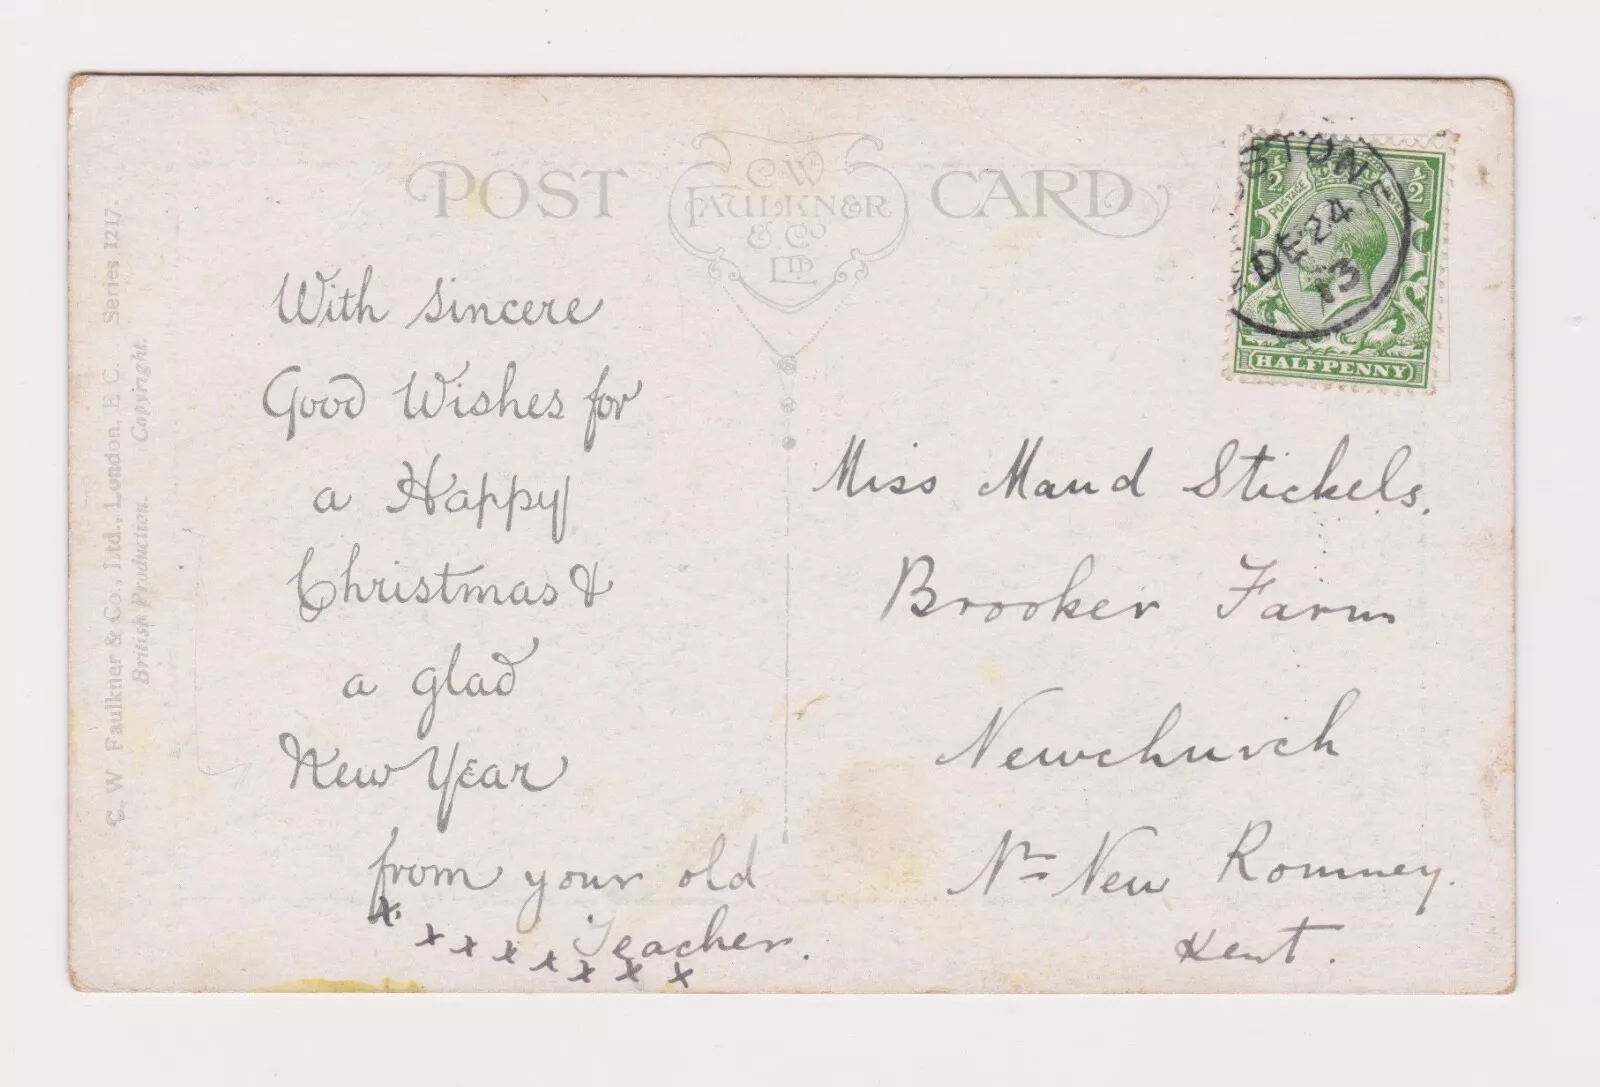 POST CARD
C.W.
FAULKNER
& Co
LTD
C. W. Faulkner & Co., Ltd., London, E.C. Series 1217.
British Production. Copyright.
STONE
DE 24
13
½ ½
POSTAGE
HALFPENNY
With sincere
Good Wishes for
a Happy
Christmas &
a glad
New Year
from your old
Teacher.
x x x x x x x x
Miss Maud Stickels.
Brooker Farm
Newchurch
Nr New Romney.
Kent.